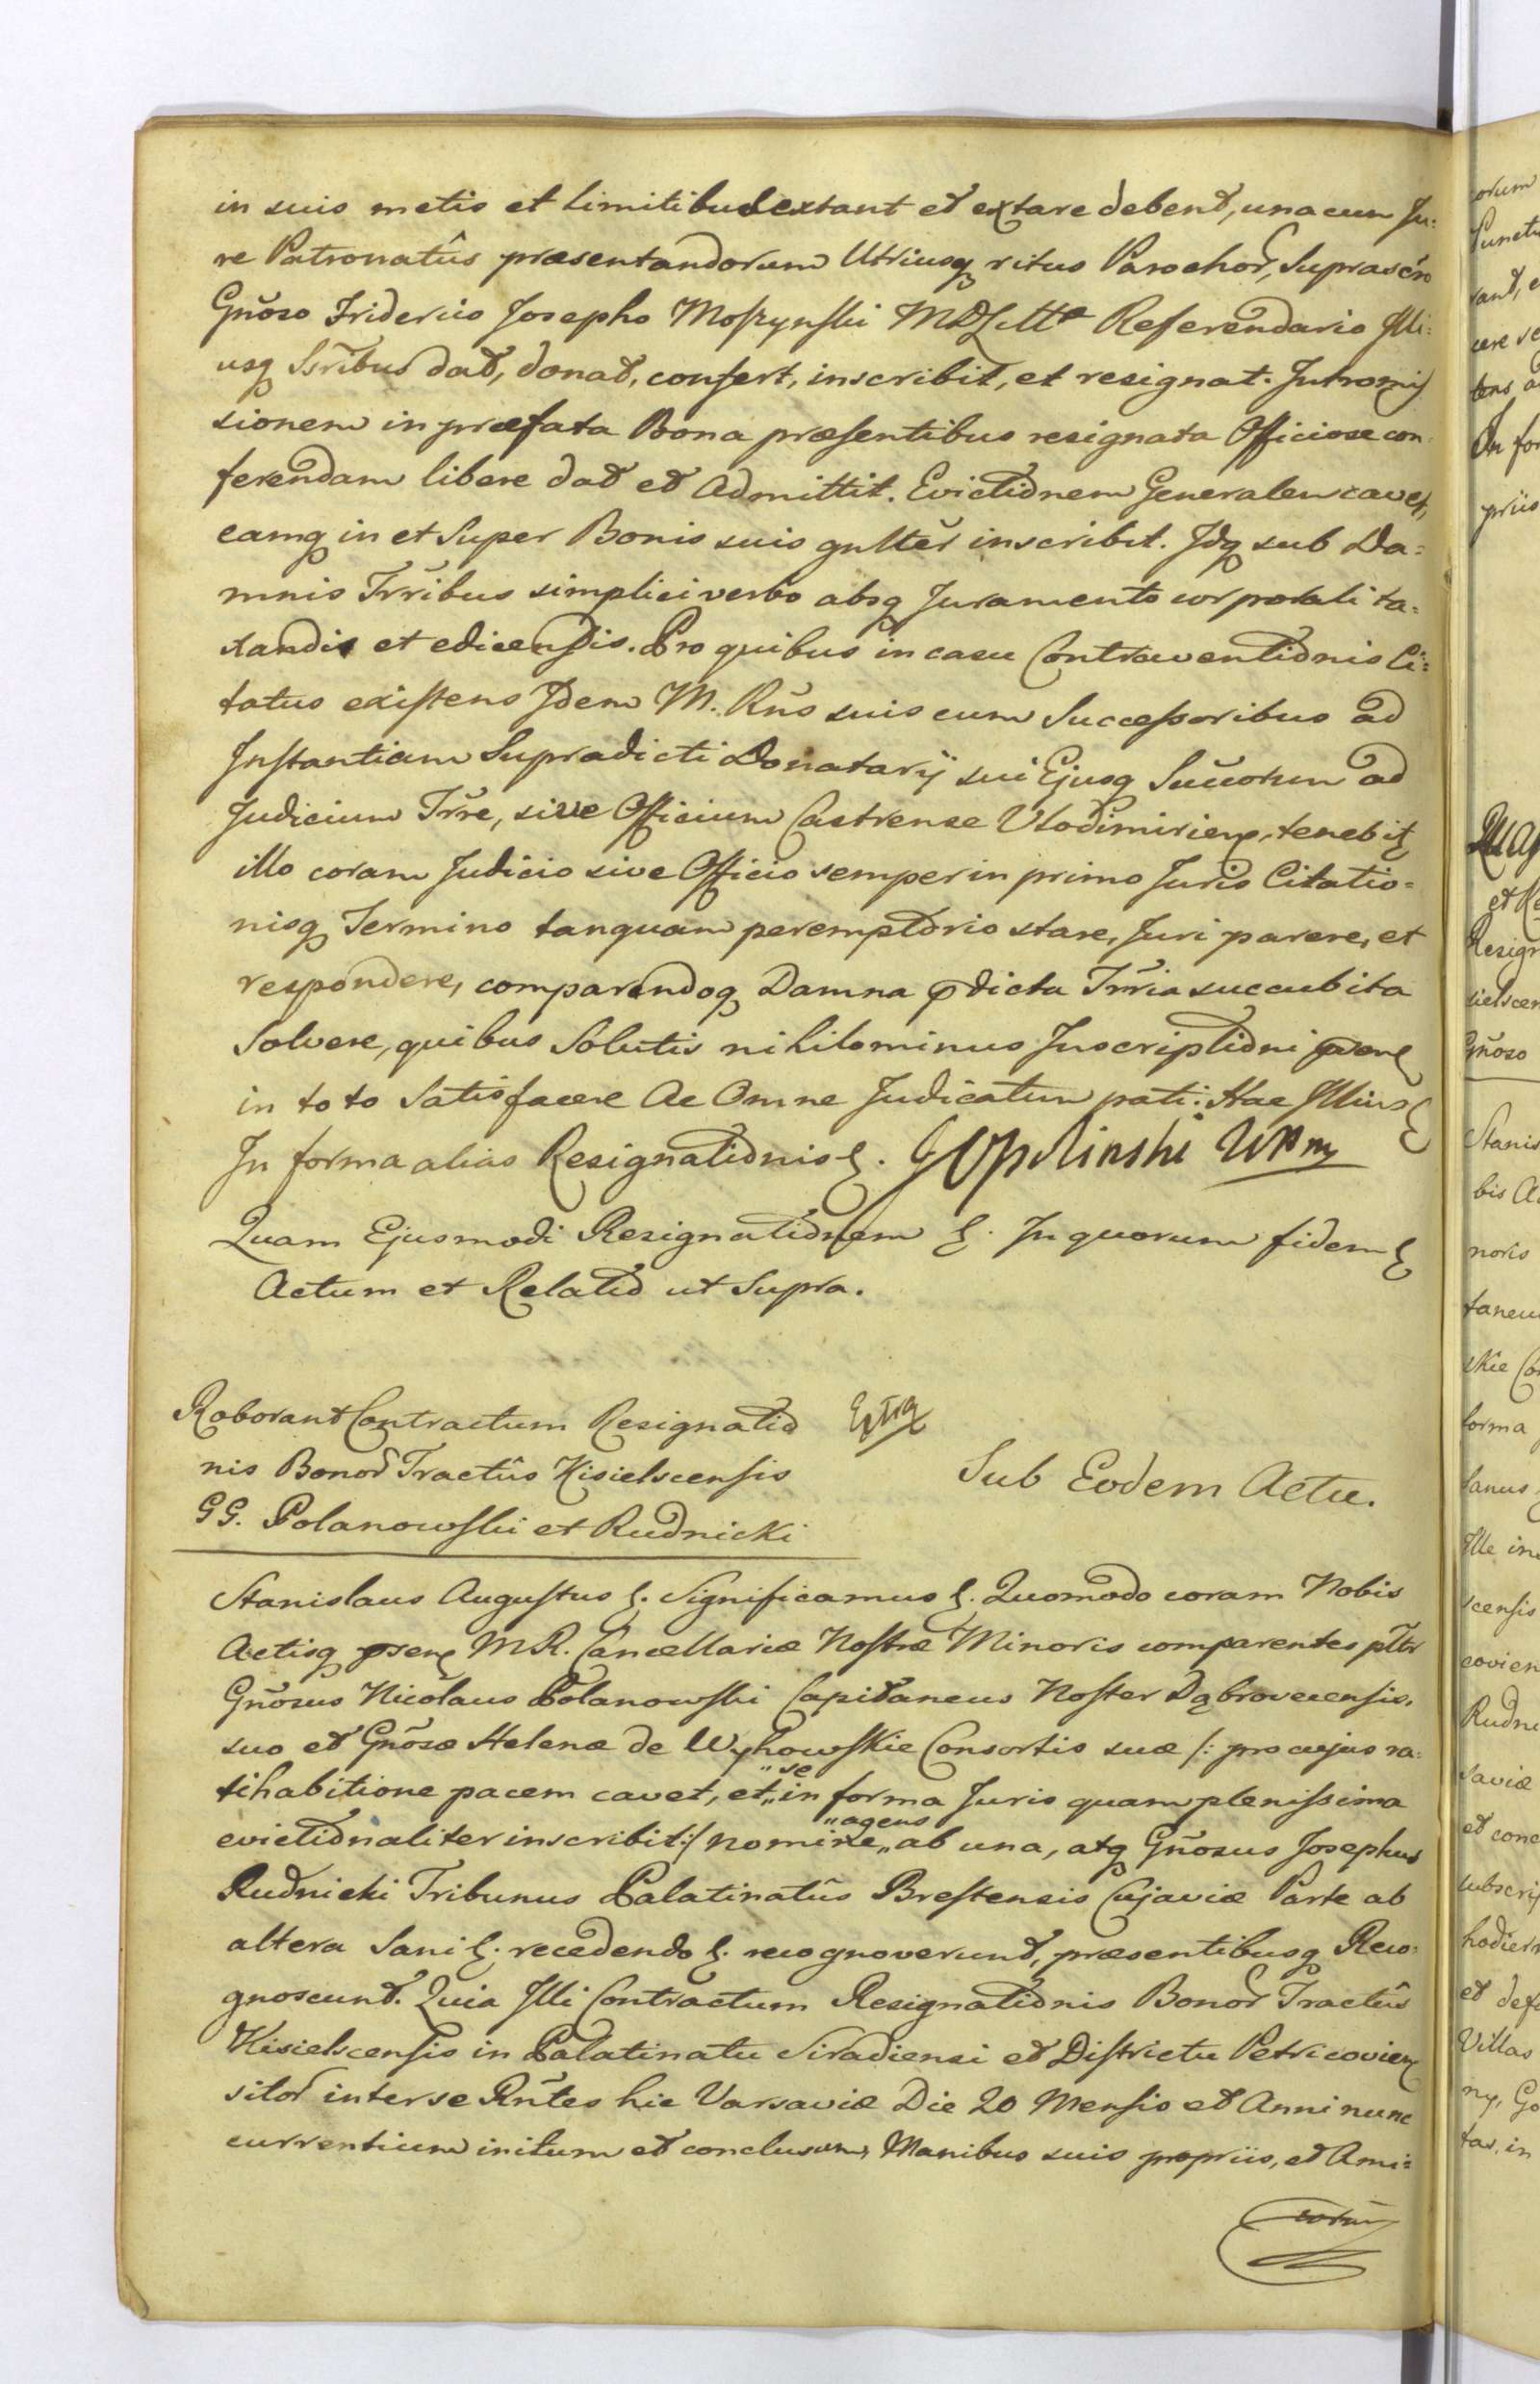 in suis metis et limitibus extant et extare debent, una cum Ju=
re Patronatûs præsentandorum Utriusq ritus Parochor, Suprascro
Gñoso Friderico Josepho Moszynski MDLitt Referendario Illi=
usq Ssribus dat, donat, confert, inscribit, et resignat. Intromis
sionem in præfata Bona præsentibus resignata Officiose con
ferendam libere dat et Admittit. Evictionem Generalem cavet,
eamq in et Super Bonis suis gnlter inscribit. Idq sub Da=
mnis Trribus simplici verbo absq Juramento corporali ta=
xandis et edicendis. Pro quibus in casu Contraventionis Ci=
tatus existens Idem M. Rñs suis cum Successoribus ad
Instantiam Supradicti Donatarij sui Ejusq Succorum ad
Judicium Trre, sive Officium Castrense Vlodimiriens, tenebit
illo coram Judicio sive Officio semper in primo Juris Citatio=
nisq Termino tanquam peremptorio stare, Juri parere, et
respondere, comparendoq Damna pdicta Trria succubita
Solvere, quibus Solutis nihilominus Inscriptioni pnti
in toto Satisfacere Ac Omne Judicatum pati. Hac Illius
In forma alias Resignationis &. JOpolinski WKm
Quam Ejusmodi Resignationem &. In quorum fidem &
Actum et Relatio ut Supra.
Roborant Contractum Resignatio Extra
nis Bonor Tractûs Kisielscensis
Sub Eodem Actu.
GG. Polanowski et Rudnicki
Stanislaus Augustus &. Significamus &. Quomodo coram Nobis
Actisq psen MR. Cancellariæ Nostræ Minoris comparentes pltr
Gñosus Nicolaus Polanowski Capitaneus Noster Dąbrovecensis,
suo et Gñosæ Helenæ de Wyhowskie Consortis suæ /: pro cujus ra=
tihabitione pacem cavet, et „se„ in forma Juris quam plenissima
evictionaliter inscribit :/ nomine „agens„ ab una, atq Gñosus Josephus
Rudnicki Tribunus Palatinatûs Brestensis Cujaviæ Parte ab
altera Sani &. recedendo &. recognoverunt, præsentibusq Reco=
gnoscunt. Quia Illi Contractum Resignationis Bonor Tractûs
Kisielscensis in Palatinatu Siradiensi et Districtu Petricovien
sitor inter se Rñtes hic Varsaviæ Die 20 Mensis et Anni nunc
currentium initum et conclusum, Manibus suis propriis, et Ami=
corum